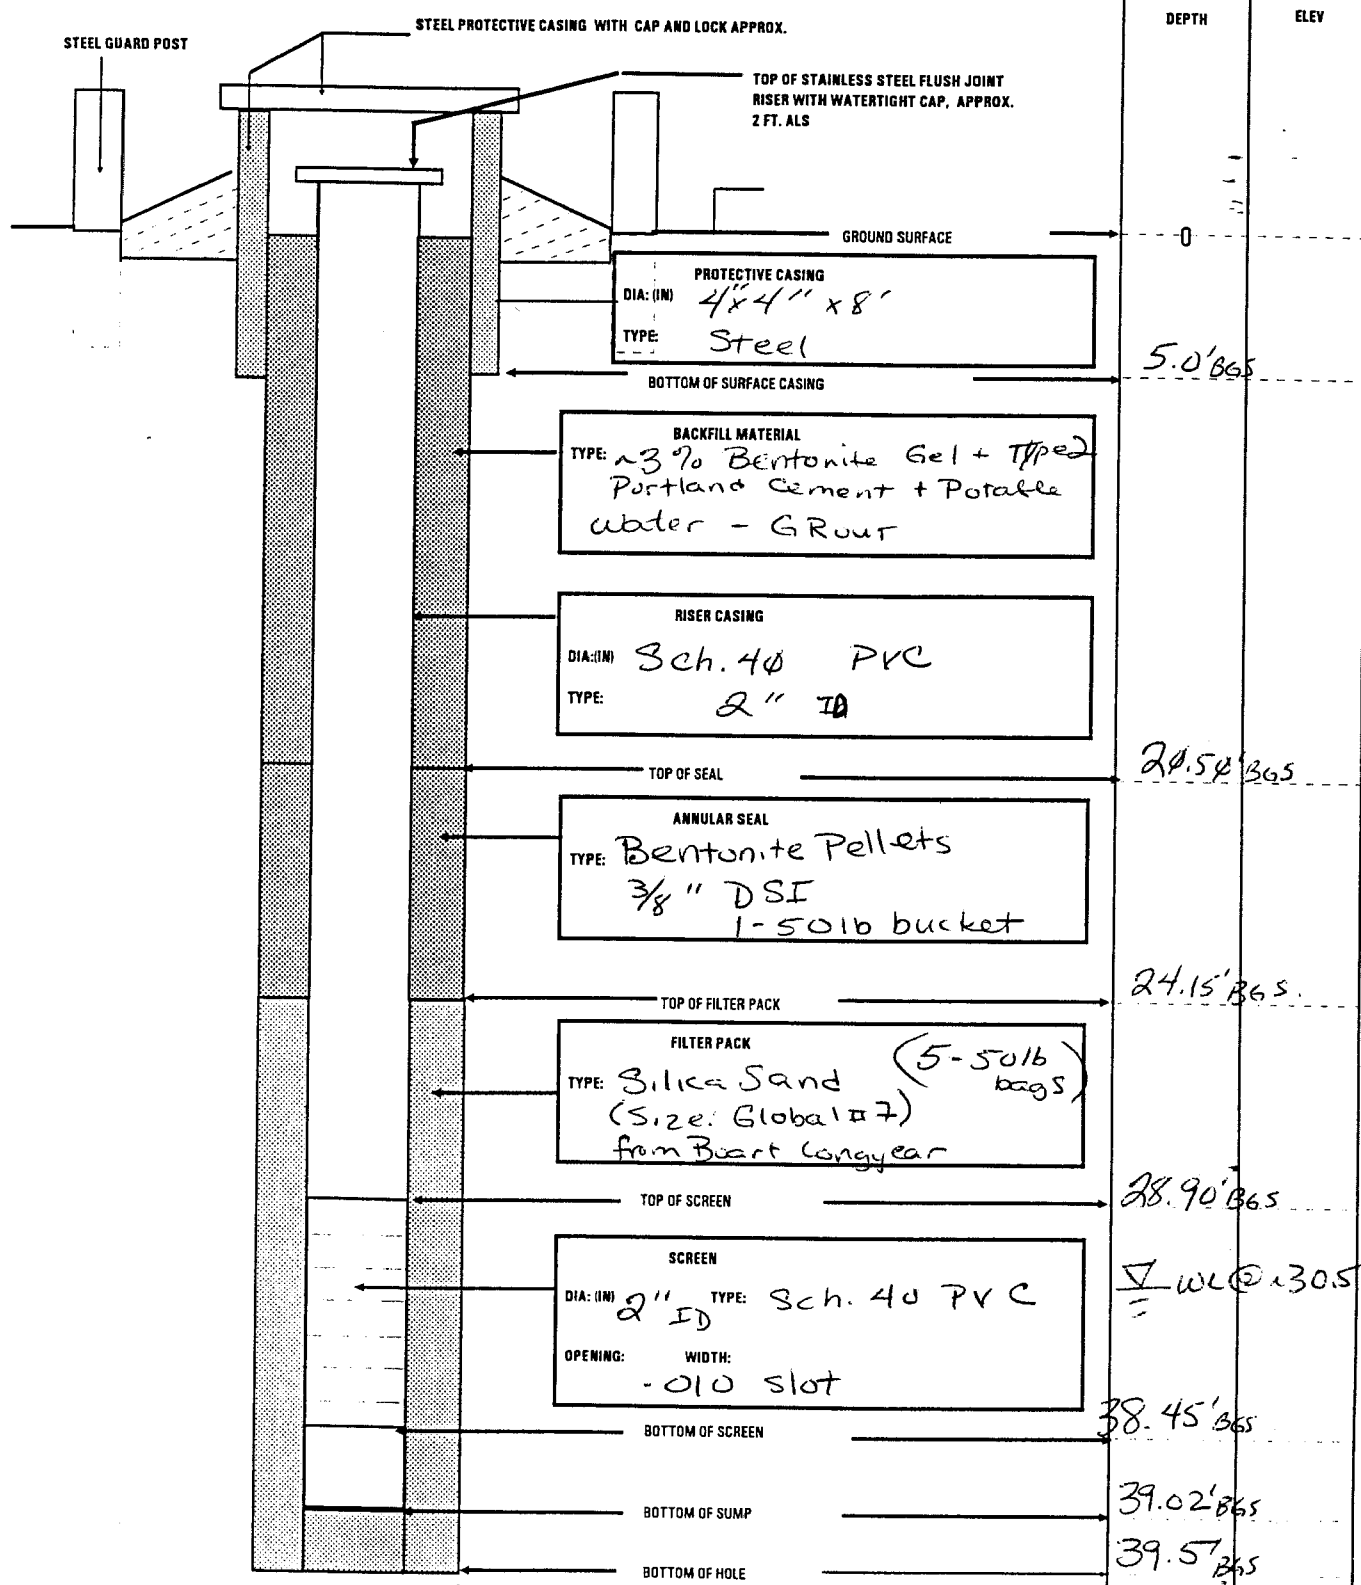 DEPTH
ELEV
STEEL GUARD POST
STEEL PROTECTIVE CASING WITH CAP AND LOCK APPROX.
TOP OF STAINLESS STEEL FLUSH JOINT
RISER WITH WATERTIGHT CAP, APPROX.
2 FT. ALS
GROUND SURFACE
0
PROTECTIVE CASING
DIA: (IN) 4"x4" x 8'
TYPE: Steel
BOTTOM OF SURFACE CASING
5.0' BGS
BACKFILL MATERIAL
TYPE: ~3% Bentonite Gel + Type 2
Portland Cement + Potable
water - GROUT
RISER CASING
DIA:(IN) Sch. 40 PVC
TYPE: 2" ID
TOP OF SEAL
20.50' BGS
ANNULAR SEAL
TYPE: Bentonite Pellets
3/8" DSI
1-50lb bucket
TOP OF FILTER PACK
24.15' BGS.
FILTER PACK
TYPE: Silica Sand (5-50lb bags)
(Size: Global #7)
from Boart Longyear
TOP OF SCREEN
28.90' BGS
SCREEN
DIA: (IN) 2" ID TYPE: Sch. 40 PVC
WL @ ~30.5
OPENING: WIDTH:
.010 slot
BOTTOM OF SCREEN
38.45' BGS
BOTTOM OF SUMP
39.02' BGS
BOTTOM OF HOLE
39.5' BGS